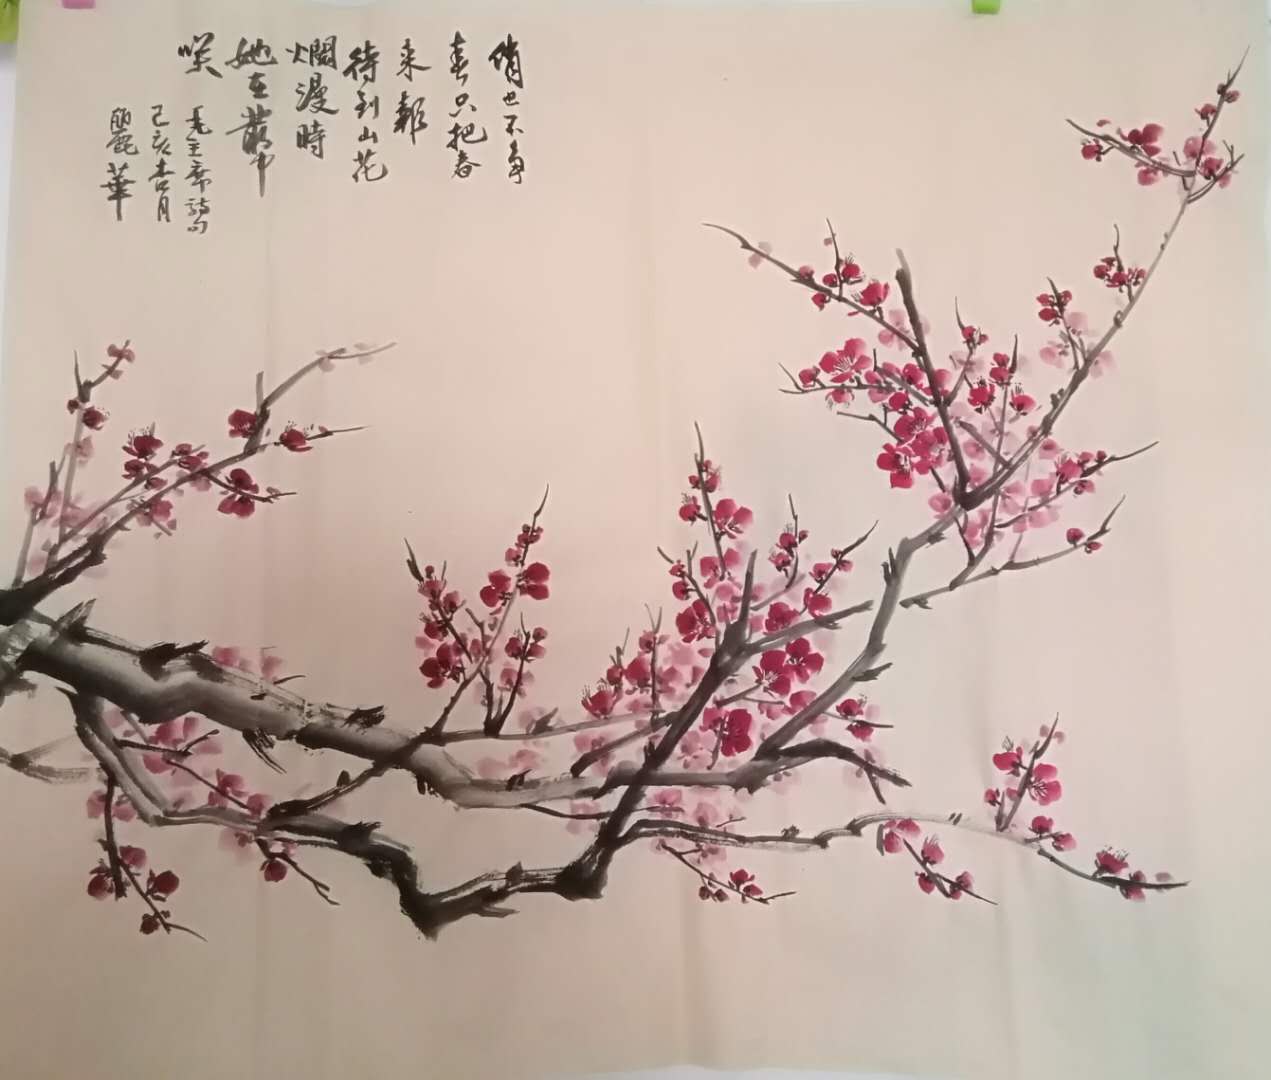 俏也不争
春只把春
来報
待到山花
爛漫時
她在叢中
咲
毛主席詩句
己亥杏月
麗華